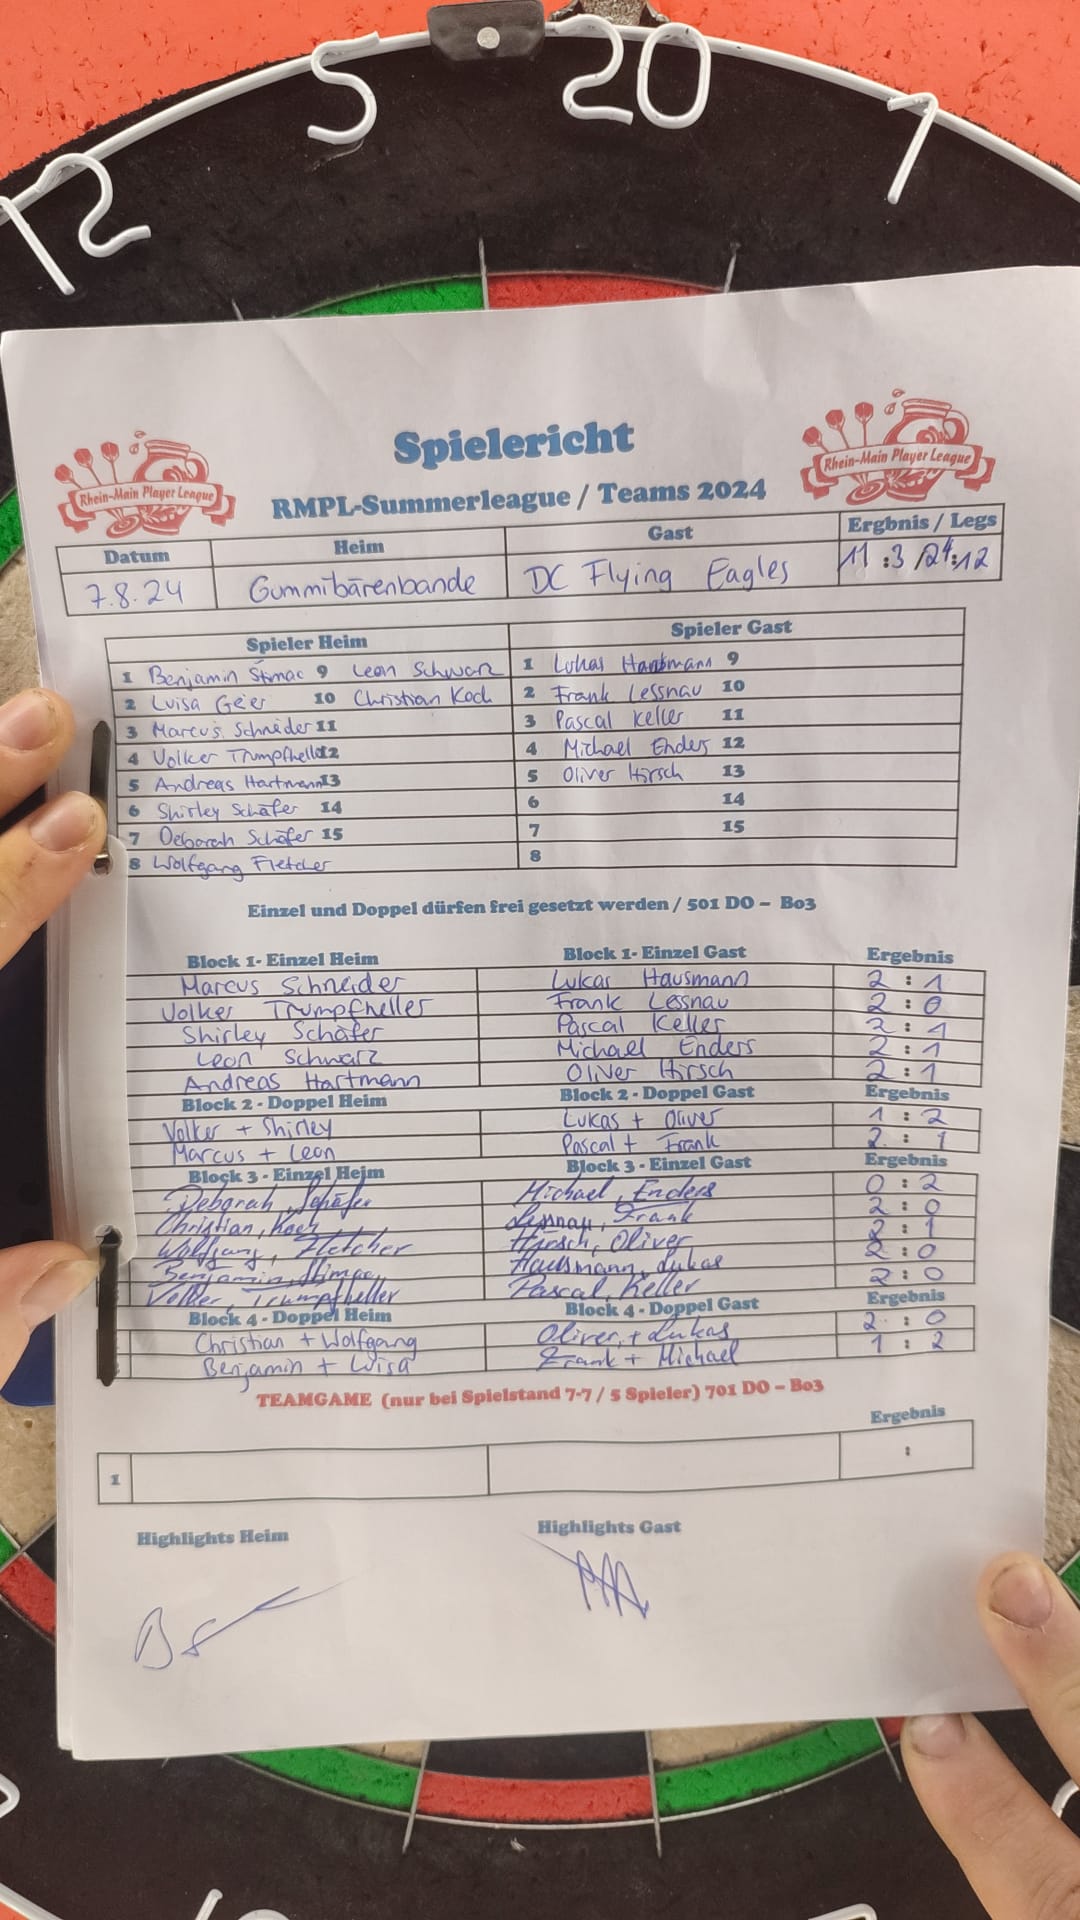 5 20 1
12
Rhein-Main Player League
Rhein-Main Player League
Spielericht
RMPL-Summerleague / Teams 2024
Datum Heim Gast Ergbnis / Legs
7.8.24 Gummibärenbande DC Flying Eagles 11 :3 /24:12
Spieler Heim Spieler Gast
1 Benjamin Stimac 9 Leon Schwarz 1 Lukas Hausmann 9
2 Luisa Geier 10 Christian Koch 2 Frank Lessnau 10
3 Marcus Schneider 11 3 Pascal Keller 11
4 Volker Trumpfheller 12 4 Michael Enders 12
5 Andreas Hartmann 13 5 Oliver Hirsch 13
6 Shirley Schäfer 14 6 14
7 Deborah Schäfer 15 7 15
8 Wolfgang Fletcher 8
Einzel und Doppel dürfen frei gesetzt werden / 501 DO – Bo3
Block 1- Einzel Heim Block 1- Einzel Gast Ergebnis
Marcus Schneider Lukas Hausmann 2 : 1
Volker Trumpfheller Frank Lessnau 2 : 0
Shirley Schäfer Pascal Keller 2 : 1
Leon Schwarz Michael Enders 2 : 1
Andreas Hartmann Oliver Hirsch 2 : 1
Block 2 - Doppel Heim Block 2 - Doppel Gast Ergebnis
Volker + Shirley Lukas + Oliver 1 : 2
Marcus + Leon Pascal + Frank 2 : 1
Block 3 - Einzel Heim Block 3 - Einzel Gast Ergebnis
Deborah, Schäfer Michael, Enders 0 : 2
Christian, Koch Lessnau, Frank 2 : 0
Wolfgang, Fletcher Hirsch, Oliver 2 : 1
Benjamin, Stimac Hausmann, Lukas 2 : 0
Volker, Trumpfheller Pascal, Keller 2 : 0
Block 4 - Doppel Heim Block 4 - Doppel Gast Ergebnis
Christian + Wolfgang Oliver + Lukas 2 : 0
Benjamin + Luisa Frank + Michael 1 : 2
TEAMGAME (nur bei Spielstand 7-7 / 5 Spieler) 701 DO – Bo3
Ergebnis
1 :
Highlights Heim Highlights Gast